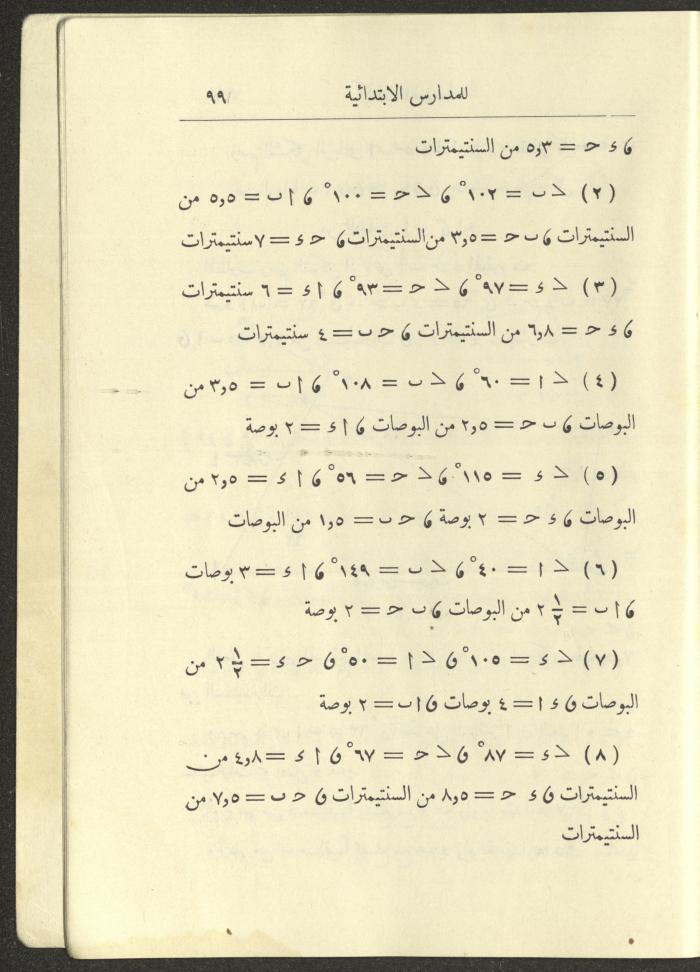 للمدارس الابتدائية ٩٩
ﻭ ء ح = ٥٫٣ من السنتيمترات
(٢) > ب = ١٠٢° ﻭ > ح = ١٠٠° ﻭ ا ب = ٥٫٥ من
السنتيمترات ﻭ ب ح = ٣٫٥ من السنتيمترات ﻭ ح ء = ٧ سنتيمترات
(٣) > ء = ٩٧° ﻭ > ح = ٩٣° ﻭ ا ء = ٦ سنتيمترات
ﻭ ء ح = ٦٫٨ من السنتيمترات ﻭ ح ب = ٤ سنتيمترات
(٤) > ا = ٦٠° ﻭ > ب = ١٠٨° ﻭ ا ب = ٣٫٥ من
البوصات ﻭ ب ح = ٢٫٥ من البوصات ﻭ ا ء = ٢ بوصة
(٥) > ء = ١١٥° ﻭ > ح = ٥٦° ﻭ ا ء = ٢٫٥ من
البوصات ﻭ ء ح = ٢ بوصة ﻭ ح ب = ١٫٥ من البوصات
(٦) > ا = ٤٠° ﻭ > ب = ١٤٩° ﻭ ا ء = ٣ بوصات
ﻭ ا ب = ٢ ١/٢ من البوصات ﻭ ب ح = ٢ بوصة
(٧) > ء = ١٠٥° ﻭ > ا = ٥٠° ﻭ ح ء = ٢ ١/٢ من
البوصات ﻭ ء ا = ٤ بوصات ﻭ ا ب = ٢ بوصة
(٨) > ء = ٨٧° ﻭ > ح = ٦٧° ﻭ ا ء = ٤٫٨ من
السنتيمترات ﻭ ء ح = ٨٫٥ من السنتيمترات ﻭ ح ب = ٧٫٥ من
السنتيمترات